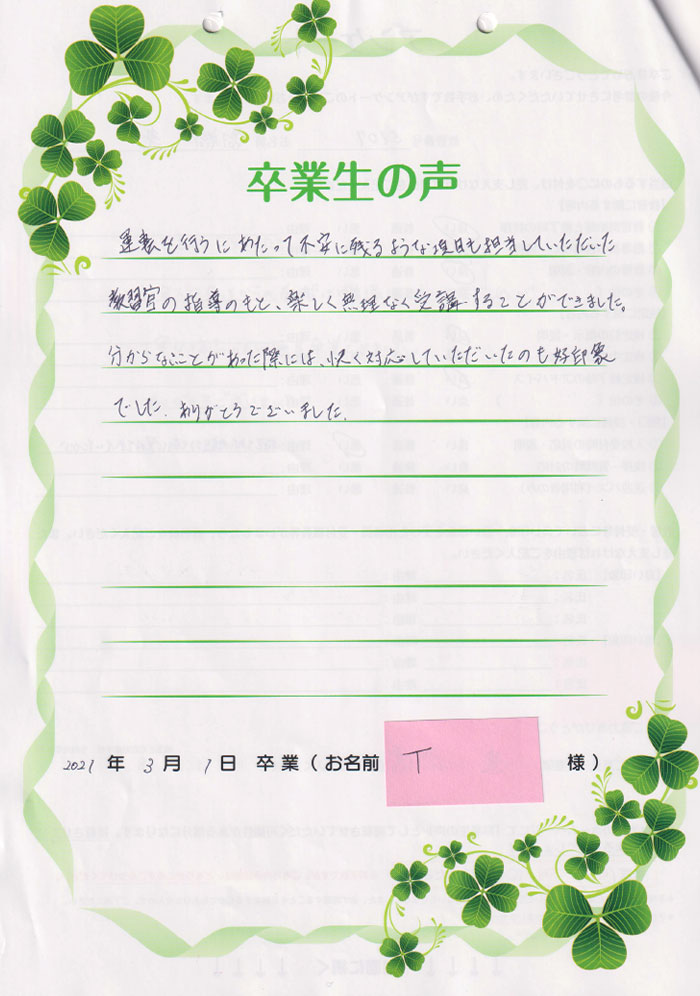 卒業生の声
運転を行うにあたって不安に残るような項目も担当していただいた
教習官の指導のもと、楽しく無理なく受講することができました。
分からなことがあった際には、快く対応していただいたのも好印象
でした。ありがとうございました。
2021年 3月 1日 卒業(お名前 T 様)